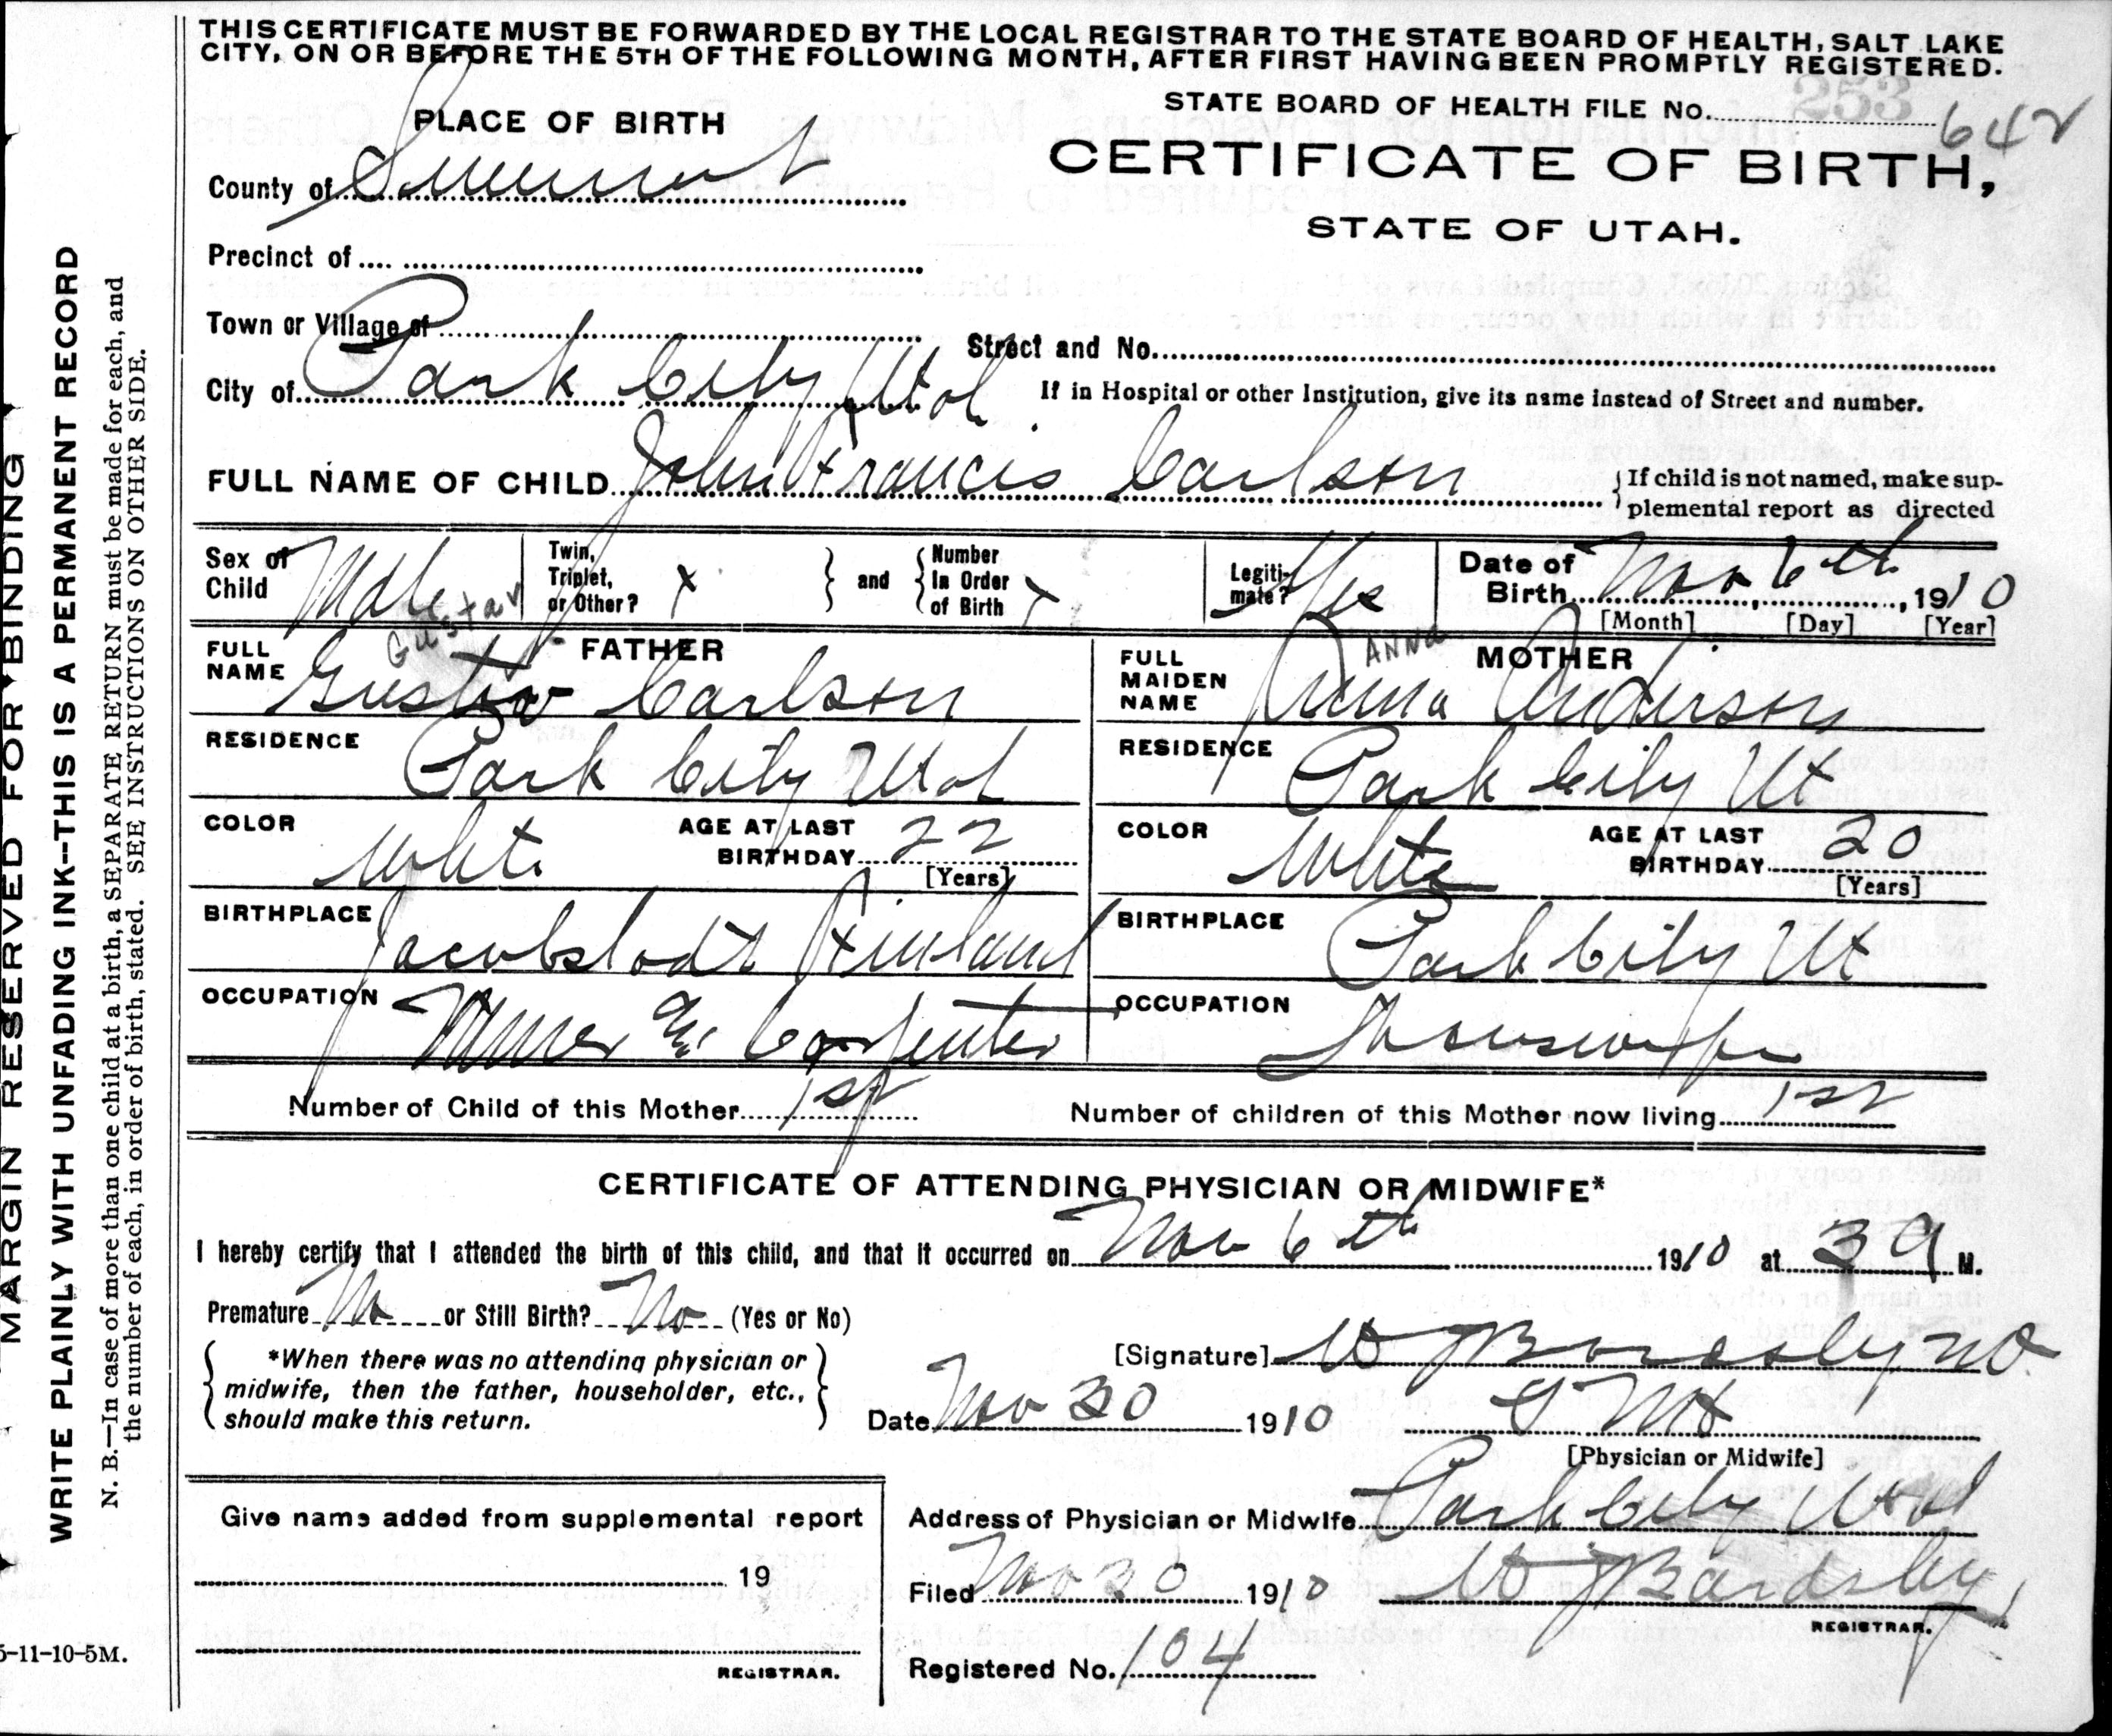 THIS CERTIFICATE MUST BE FORWARDED BY THE LOCAL REGISTRAR TO THE STATE BOARD OF HEALTH, SALT LAKE
CITY, ON OR BEFORE THE 5TH OF THE FOLLOWING MONTH, AFTER FIRST HAVING BEEN PROMPTLY REGISTERED.
STATE BOARD OF HEALTH FILE No. 253 642
PLACE OF BIRTH
CERTIFICATE OF BIRTH,
STATE OF UTAH.
County of Summit
Precinct of
Town or Village of
Street and No.
City of Park City Utah
If in Hospital or other Institution, give its name instead of Street and number.
FULL NAME OF CHILD John Francis Carlson
{If child is not named, make sup-
plemental report as directed
Sex of Child Male
Twin, Triplet, or Other? x } and { Number In Order of Birth x
Legiti-mate? Yes
Date of Birth Nov 6th, 1910
[Month] [Day] [Year]
FATHER
FULL NAME Gustav Carlson
Gustav
MOTHER
FULL MAIDEN NAME Anna Anderson
ANNA
RESIDENCE Park City Utah
RESIDENCE Park City Ut
COLOR White AGE AT LAST BIRTHDAY 22 [Years]
COLOR White AGE AT LAST BIRTHDAY 20 [Years]
BIRTHPLACE Jacobstadt Finland
BIRTHPLACE Park City Ut
OCCUPATION Miner & Carpenter
OCCUPATION Housewife
Number of Child of this Mother 1st
Number of children of this Mother now living 1st
CERTIFICATE OF ATTENDING PHYSICIAN OR MIDWIFE*
I hereby certify that I attended the birth of this child, and that it occurred on Nov 6th 1910 at 3 a M.
Premature No or Still Birth? No (Yes or No)
{ *When there was no attending physician or
midwife, then the father, householder, etc.,
should make this return. }
[Signature] W Bardsley MD
Date Nov 30 1910
[Physician or Midwife]
Address of Physician or Midwife Park City Utah
Filed Nov 30 1910 W Bardsley
REGISTRAR.
Registered No. 104
Give name added from supplemental report
19
REGISTRAR.
MARGIN RESERVED FOR BINDING
WRITE PLAINLY WITH UNFADING INK--THIS IS A PERMANENT RECORD
N. B.—In case of more than one child at a birth, a SEPARATE RETURN must be made for each, and
the number of each, in order of birth, stated. SEE INSTRUCTIONS ON OTHER SIDE.
5-11-10-5M.